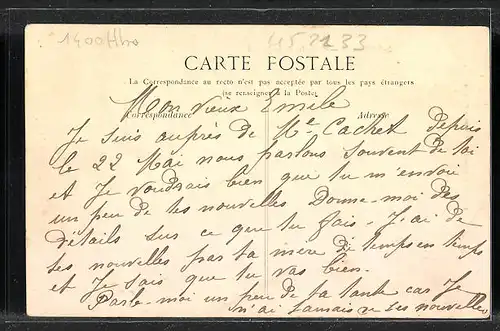 1400Hbo
45 2233
CARTE POSTALE
La Correspondance au recto n'est pas acceptée par tous les pays étrangers
(se renseigner à la Poste)
Mon vieux Emile
Correspondance Adresse
Je suis auprès de Me Cachet depuis
le 22 Mai nous parlons souvent de toi
et Je voudrais bien que tu m'envoie
un peu de tes nouvelles Donne-moi des
Détails sur ce que tu fais. J'ai de
tes nouvelles par ta mère De temps en temps
et Je sais que tu vas bien.
Parle-moi un peu de ta tante car Je
n'ai Jamais de ses nouvelles